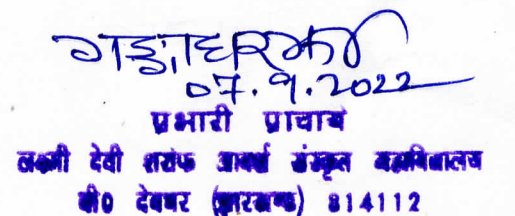 गङ्गाधर झा
07.9.2022
प्रभारी प्राचार्य
लक्ष्मी देवी शर्राफ आदर्श संस्कृत महाविद्यालय
बी0 देवघर (झारखण्ड) 814112